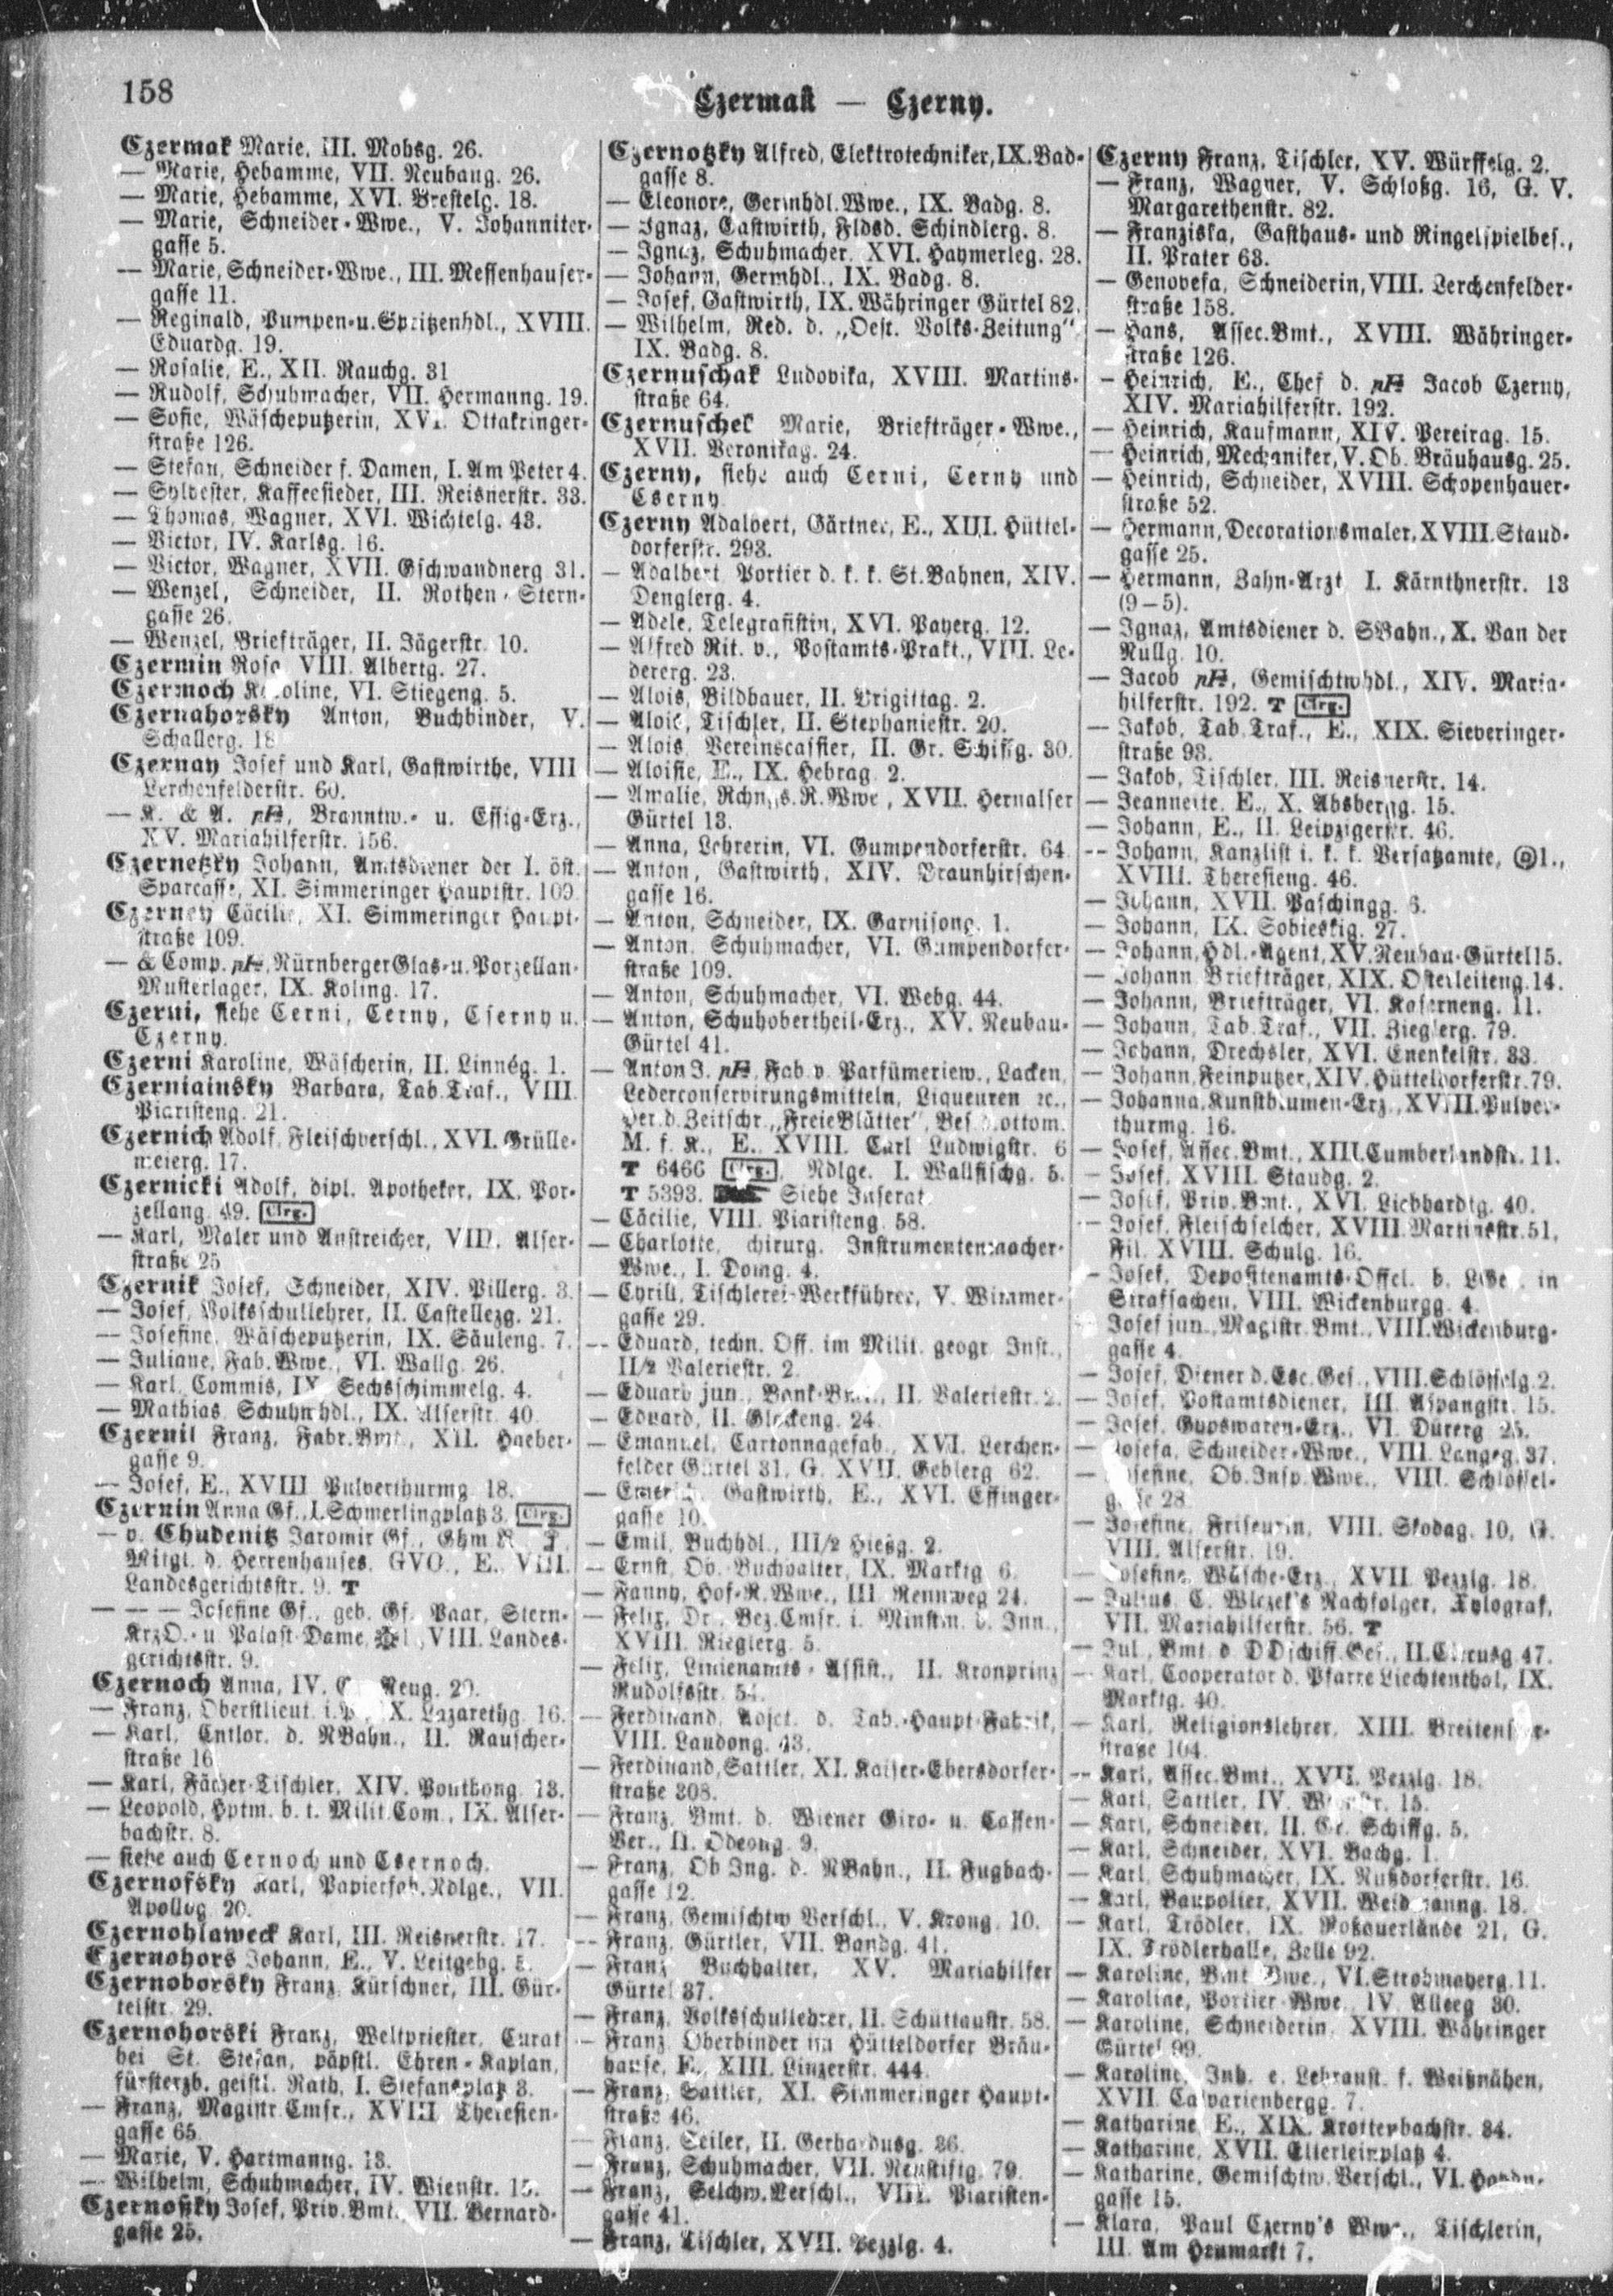 158
Czermak — Czerny.
Czermak Marie, III. Mohsg. 26.
— Marie, Hebamme, VII. Neubaug. 26.
— Marie, Hebamme, XVI. Brestelg. 18.
— Marie, Schneider-Wwe., V. Johanniter-
gasse 5.
— Marie, Schneider-Wwe., III. Messenhauser-
gasse 11.
— Reginald, Pumpen- u. Spritzenhdl., XVIII.
Eduardg. 19.
— Rosalie, E., XII. Rauchg. 31
— Rudolf, Schuhmacher, VII. Hermanng. 19.
— Sofie, Wäscheputzerin, XVI. Ottakringer-
straße 126.
— Stefan, Schneider f. Damen, I. Am Peter 4.
— Sylvester, Kaffeesieder, III. Reisnerstr. 33.
— Thomas, Wagner, XVI. Wichtelg. 43.
— Victor, IV. Karlsg. 16.
— Victor, Wagner, XVII. Gschwandnerg 31.
— Wenzel, Schneider, II. Rothen-Stern-
gasse 26.
— Wenzel, Briefträger, II. Jägerstr. 10.
Czermin Rosa VIII. Albertg. 27.
Czermoch Karoline, VI. Stiegeng. 5.
Czernahorsky Anton, Buchbinder, V.
Schallerg. 18
Czernay Josef und Karl, Gastwirthe, VIII
Lerchenfelderstr. 60.
— K. & A. pH, Branntw.- u. Essig-Erz.,
XV. Mariahilferstr. 156.
Czernetzky Johann, Amtsdiener der I. öst.
Sparcasse, XI. Simmeringer Hauptstr. 109.
Czerney Cäcilie, XI. Simmeringer Haupt-
straße 109.
— & Comp. pH, Nürnberger Glas- u. Porzellan-
Musterlager, IX. Koling. 17.
Czerni, siehe Cerni, Cerny, Cserny u.
Czerny.
Czerni Karoline, Wäscherin, II. Linnég. 1.
Czerniainsky Barbara, Tab.Traf., VIII.
Piaristeng. 21.
Czernich Adolf, Fleischverschl., XVI. Grülle-
meierg. 17.
Czernicki Adolf, dipl. Apotheker, IX. Por-
zellang. 49. Clrg.
— Karl, Maler und Anstreicher, VIII. Alser-
straße 25
Czernik Josef, Schneider, XIV. Pillerg. 3.
— Josef, Volksschullehrer, II. Castellezg. 21.
— Josefine, Wäscheputzerin, IX. Säuleng. 7.
— Juliane, Fab.Wwe., VI. Wallg. 26.
— Karl, Commis, IX. Sechsschimmelg. 4.
— Mathias, Schuhmhdl., IX. Alserstr. 40.
Czernil Franz, Fabr.Bmt., XII. Haeber-
gasse 9.
— Josef, E., XVIII Pulverthurmg. 18.
Czernin Anna Gf., I. Schmerlingplatz 3. Clrg.
— v. Chudenitz Jaromir Gf., Ghm.R.
Mitgl. d. Herrenhauses, GVO., E., VIII.
Landesgerichtsstr. 9. T
— — — Josefine Gf., geb. Gf. Paar, Stern-
KrzO.- u Palast-Dame, VIII. Landes-
gerichtsstr. 9.
Czernoch Anna, IV. Neug. 20.
— Franz, Oberstlieut. i. X. Lazarethg. 16.
— Karl, Cntlor. d. NBahn., II. Rauscher-
straße 16
— Karl, Fächer-Tischler, XIV. Pouthong. 13.
— Leopold, Hptm. b. t. Milit.Com., IX. Alser-
bachstr. 8.
— siehe auch Cernoch und Csernoch.
Czernofsky Karl, Papierfab.Ndlge., VII.
Apollog. 20.
Czernohlaweck Karl, III. Reisnerstr. 17.
Czernohors Johann, E., V. Leitgebg.
Czernohorsky Franz, Kürschner, III. Gür-
telstr. 29.
Czernohorski Franz, Weltpriester, Curat
bei St. Stefan, päpstl. Ehren-Kaplan,
fürsterzb. geistl. Rath, I. Stefansplatz 3.
— Franz, Magistr.Cmsr., XVIII. Theresien-
gasse 65.
— Marie, V. Hartmanng. 13.
— Wilhelm, Schuhmacher, IV. Wienstr. 15.
Czernosky Josef, Priv.Bmt. VII. Bernard-
gasse 25.
Czernotzky Alfred, Elektrotechniker, IX. Bad-
gasse 8.
— Eleonore, Germhdl.Wwe., IX. Badg. 8.
— Ignaz, Gastwirth, Fldsd. Schindlerg. 8.
— Ignaz, Schuhmacher, XVI. Haymerleg. 28.
— Johann, Germhdl., IX. Badg. 8.
— Josef, Gastwirth, IX. Währinger Gürtel 82.
— Wilhelm, Red. d. „Oest. Volks-Zeitung“
IX. Badg. 8.
Czernuschak Ludovika, XVIII. Martins-
straße 64.
Czernuschek Marie, Briefträger-Wwe.,
XVII. Veronikag. 24.
Czerny, siehe auch Cerni, Cerny und
Cserny.
Czerny Adalbert, Gärtner, E., XIII. Hüttel-
dorferstr. 293.
— Adalbert, Portier d. k. k. St.Bahnen, XIV.
Denglerg. 4.
— Adele, Telegrafistin, XVI. Payerg. 12.
— Alfred Rit. v., Postamts-Prakt., VIII. Le-
dererg. 23.
— Alois, Bildhauer, II. Brigittag. 2.
— Alois, Tischler, II. Stephaniestr. 20.
— Alois, Vereinscassier, II. Gr. Schiffg. 30.
— Aloisie, E., IX. Hebrag. 2.
— Amalie, Rchngs.R.Wwe., XVII. Hernalser
Gürtel 13.
— Anna, Lehrerin, VI. Gumpendorferstr. 64.
— Anton, Gastwirth, XIV. Braunhirschen-
gasse 16.
— Anton, Schneider, IX. Garnisong. 1.
— Anton, Schuhmacher, VI. Gumpendorfer-
straße 109.
— Anton, Schuhmacher, VI. Webg. 44.
— Anton, Schuhobertheil-Erz., XV. Neubau-
Gürtel 41.
— Anton J. pH, Fab. v. Parfümeriew., Lacken,
Lederconservirungsmitteln, Liqueuren rc.,
Her. d. Zeitschr. „Freie Blätter“, Bes. ottom.
M. f. K., E., XVIII. Carl Ludwigstr. 6
T 6466 Clrg., Ndlge. I. Wallfischg. 5.
T 5393. Siehe Inserat
— Cäcilie, VIII. Piaristeng. 58.
— Charlotte, chirurg. Instrumentenmacher-
Wwe., I. Domg. 4.
— Cyrill, Tischlerei-Werkführer, V. Wimmer-
gasse 29.
— Eduard, techn. Off. im Milit. geogr. Inst.,
II/2 Valeriestr. 2.
— Eduard jun., Bank-Bmt., II. Valeriestr. 2.
— Eduard, II. Glockeng. 24.
— Emanuel, Cartonnagefab., XVI. Lerchen-
felder Gürtel 31, G. XVII. Geblerg 62.
— Emerich, Gastwirth, E., XVI. Effinger-
gasse 10.
— Emil, Buchhdl., III/2 Hießg. 2.
— Ernst, Ob.-Buchhalter, IX. Marktg 6.
— Fanny, Hof-R.Wwe., III. Rennweg 24.
— Felix, Dr., Bez.Cmsr. i. Minstm. d. Inn.,
XVIII. Rieglerg. 5.
— Felix, Linienamts-Assist., II. Kronprinz
Rudolfsstr. 54.
— Ferdinand, Adjct. d. Tab.-Haupt-Fabrik,
VIII. Laudong. 43.
— Ferdinand, Sattler, XI. Kaiser-Ebersdorfer-
straße 308.
— Franz, Bmt. d. Wiener Giro- u. Cassen-
Ver., II. Odeong. 9.
— Franz, Ob.Ing. d. NBahn., II. Fugbach-
gasse 12.
— Franz, Gemischtw.Verschl., V. Krong. 10.
— Franz, Gürtler, VII. Bandg. 41.
— Franz Buchhalter, XV. Mariahilfer
Gürtel 37.
— Franz, Volksschullehrer, II. Schüttaustr. 58.
— Franz, Oberbinder im Hütteldorfer Bräu-
hause, E., XIII. Linzerstr. 444.
— Franz, Sattler, XI. Simmeringer Haupt-
straße 46.
— Franz, Seiler, II. Gerhardusg. 36.
— Franz, Schuhmacher, VII. Neustiftg. 79.
— Franz, Selchw.Verschl., VIII. Piaristen-
gasse 41.
— Franz, Tischler, XVII. Pezzlg. 4.
Czerny Franz, Tischler, XV. Würffelg. 2.
— Franz, Wagner, V. Schloßg. 16, G. V.
Margarethenstr. 82.
— Franziska, Gasthaus- und Ringelspielbes.,
II. Prater 63.
— Genovefa, Schneiderin, VIII. Lerchenfelder-
straße 158.
— Hans, Assec.Bmt., XVIII. Währinger-
straße 126.
— Heinrich, E., Chef d. pH Jacob Czerny,
XIV. Mariahilferstr. 192.
— Heinrich, Kaufmann, XIV. Pereirag. 15.
— Heinrich, Mechaniker, V. Ob. Bräuhausg. 25.
— Heinrich, Schneider, XVIII. Schopenhauer-
straße 52.
— Hermann, Decorationsmaler, XVIII. Staud-
gasse 25.
— Hermann, Zahn-Arzt I. Kärnthnerstr. 13
(9–5).
— Ignaz, Amtsdiener d. SBahn., X. Van der
Nüllg. 10.
— Jacob pH, Gemischtwhdl., XIV. Maria-
hilferstr. 192. T Clrg.
— Jakob, Tab.Traf., E., XIX. Sieveringer-
straße 93.
— Jakob, Tischler, III. Reisnerstr. 14.
— Jeannette, E., X. Absbergg. 15.
— Johann, E., II. Leipzigerstr. 46.
— Johann, Kanzlist i. k. k. Versatzamte, 1.,
XVIII. Theresieng. 46.
— Johann, XVII. Paschingg. 6.
— Johann, IX. Sobieskig. 27.
— Johann, Hdl.-Agent, XV. Neubau-Gürtel 15.
— Johann Briefträger, XIX. Osterleiteng. 14.
— Johann, Briefträger, VI. Kaserneng. 11.
— Johann, Tab.Traf., VII. Zieglerg. 79.
— Johann, Drechsler, XVI. Enenkelstr. 33.
— Johann, Feinputzer, XIV. Hütteldorferstr. 79.
— Johanna, Kunstblumen-Erz., XVIII. Pulver-
thurmg. 16.
— Josef, Assec.Bmt., XIII. Cumberlandstr. 11.
— Josef, XVIII. Staudg. 2.
— Josef, Priv.Bmt., XVI. Liebhardtg. 40.
— Josef, Fleischselcher, XVIII. Martinsstr. 51,
Fil. XVIII. Schulg. 16.
— Josef, Depositenamts-Offcl. b. LGe. in
Strafsachen, VIII. Wickenburgg. 4.
Josef jun., Magistr.Bmt., VIII. Wickenburg-
gasse 4.
— Josef, Diener d. Esc.Ges., VIII. Schlösselg. 2.
— Josef, Postamtsdiener, III. Aspangstr. 15.
— Josef, Gypswaren-Erz., VI. Dürerg 25.
— Josefa, Schneider-Wwe., VIII. Langeg. 37.
— Josefine, Ob.Insp.Wwe., VIII. Schlössel-
gasse 28.
— Josefine, Friseurin, VIII. Skodag. 10, G.
VIII. Alserstr. 19.
— Josefine, Wäsche-Erz., XVII. Pezzlg. 18.
— Julius, C. Wlczek's Nachfolger, Xylograf,
VII. Mariahilferstr. 56. T
— Jul., Bmt. d. DDschiff.Ges., II. 47.
— Karl, Cooperator d. Pfarre Liechtenthal, IX.
Marktg. 40.
— Karl, Religionslehrer, XIII. Breitenseer-
straße 104.
— Karl, Assec.Bmt., XVII. Pezzlg. 18.
— Karl, Sattler, IV. Wienstr. 15.
— Karl, Schneider, II. Gr. Schiffg. 5.
— Karl, Schneider, XVI. Bachg. 1.
— Karl, Schuhmacher, IX. Nußdorferstr. 16.
— Karl, Baupolier, XVII. Weidmanng. 18.
— Karl, Trödler, IX. Roßauerlände 21, G.
IX. Trödlerhalle, Zelle 92.
— Karoline, Bmt.Wwe., VI. Strohmayerg. 11.
— Karoline, Portier-Wwe., IV. Alleeg 30.
— Karoline, Schneiderin, XVIII. Währinger
Gürtel 99.
— Karoline, Inh. e. Lehranst. f. Weißnähen,
XVII. Calvarienbergg. 7.
— Katharine E., XIX. Krottenbachstr. 34.
— Katharine, XVII. Elterleinplatz 4.
— Katharine, Gemischtw.Verschl., VI. Haydn-
gasse 15.
— Klara, Paul Czerny's Wwe., Tischlerin,
III. Am Heumarkt 7.